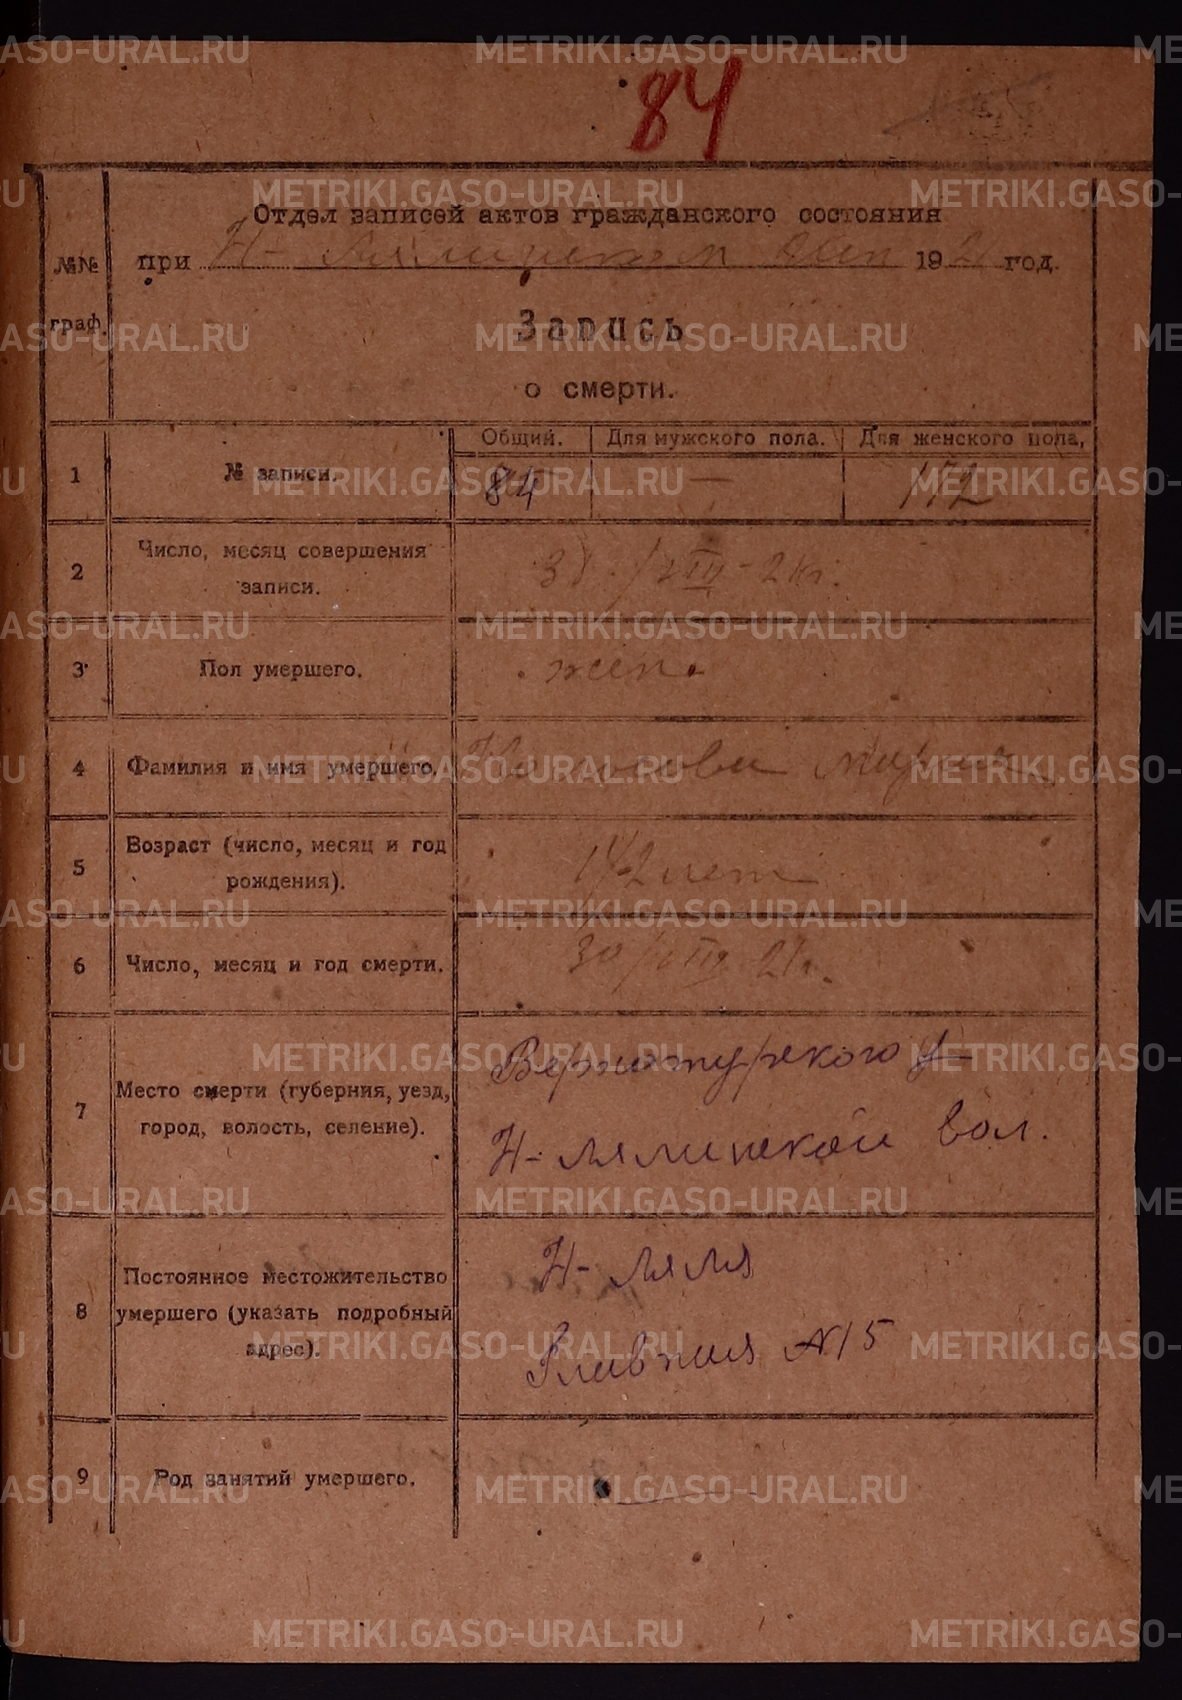 84
Отдел записей актов гражданского состояния
при Н- Лялинском 1921 год.
№№ граф.
Запись
о смерти.
Общий. Для мужского пола. Для женского пола,
1 № записи. 84 —
2 Число, месяц совершения записи.
3 Пол умершего. жен.
4 Фамилия и имя умершего.
5 Возраст (число, месяц и год рождения). лет
6 Число, месяц и год смерти. 30/VIII 21г.
7 Место смерти (губерния, уезд, город, волость, селение). Верхотурского у
Н- Лялинской вол.
8 Постоянное местожительство умершего (указать подробный адрес). Н- Ляля
Главная №15
9 Род занятий умершего.
METRIKI.GASO-URAL.RU